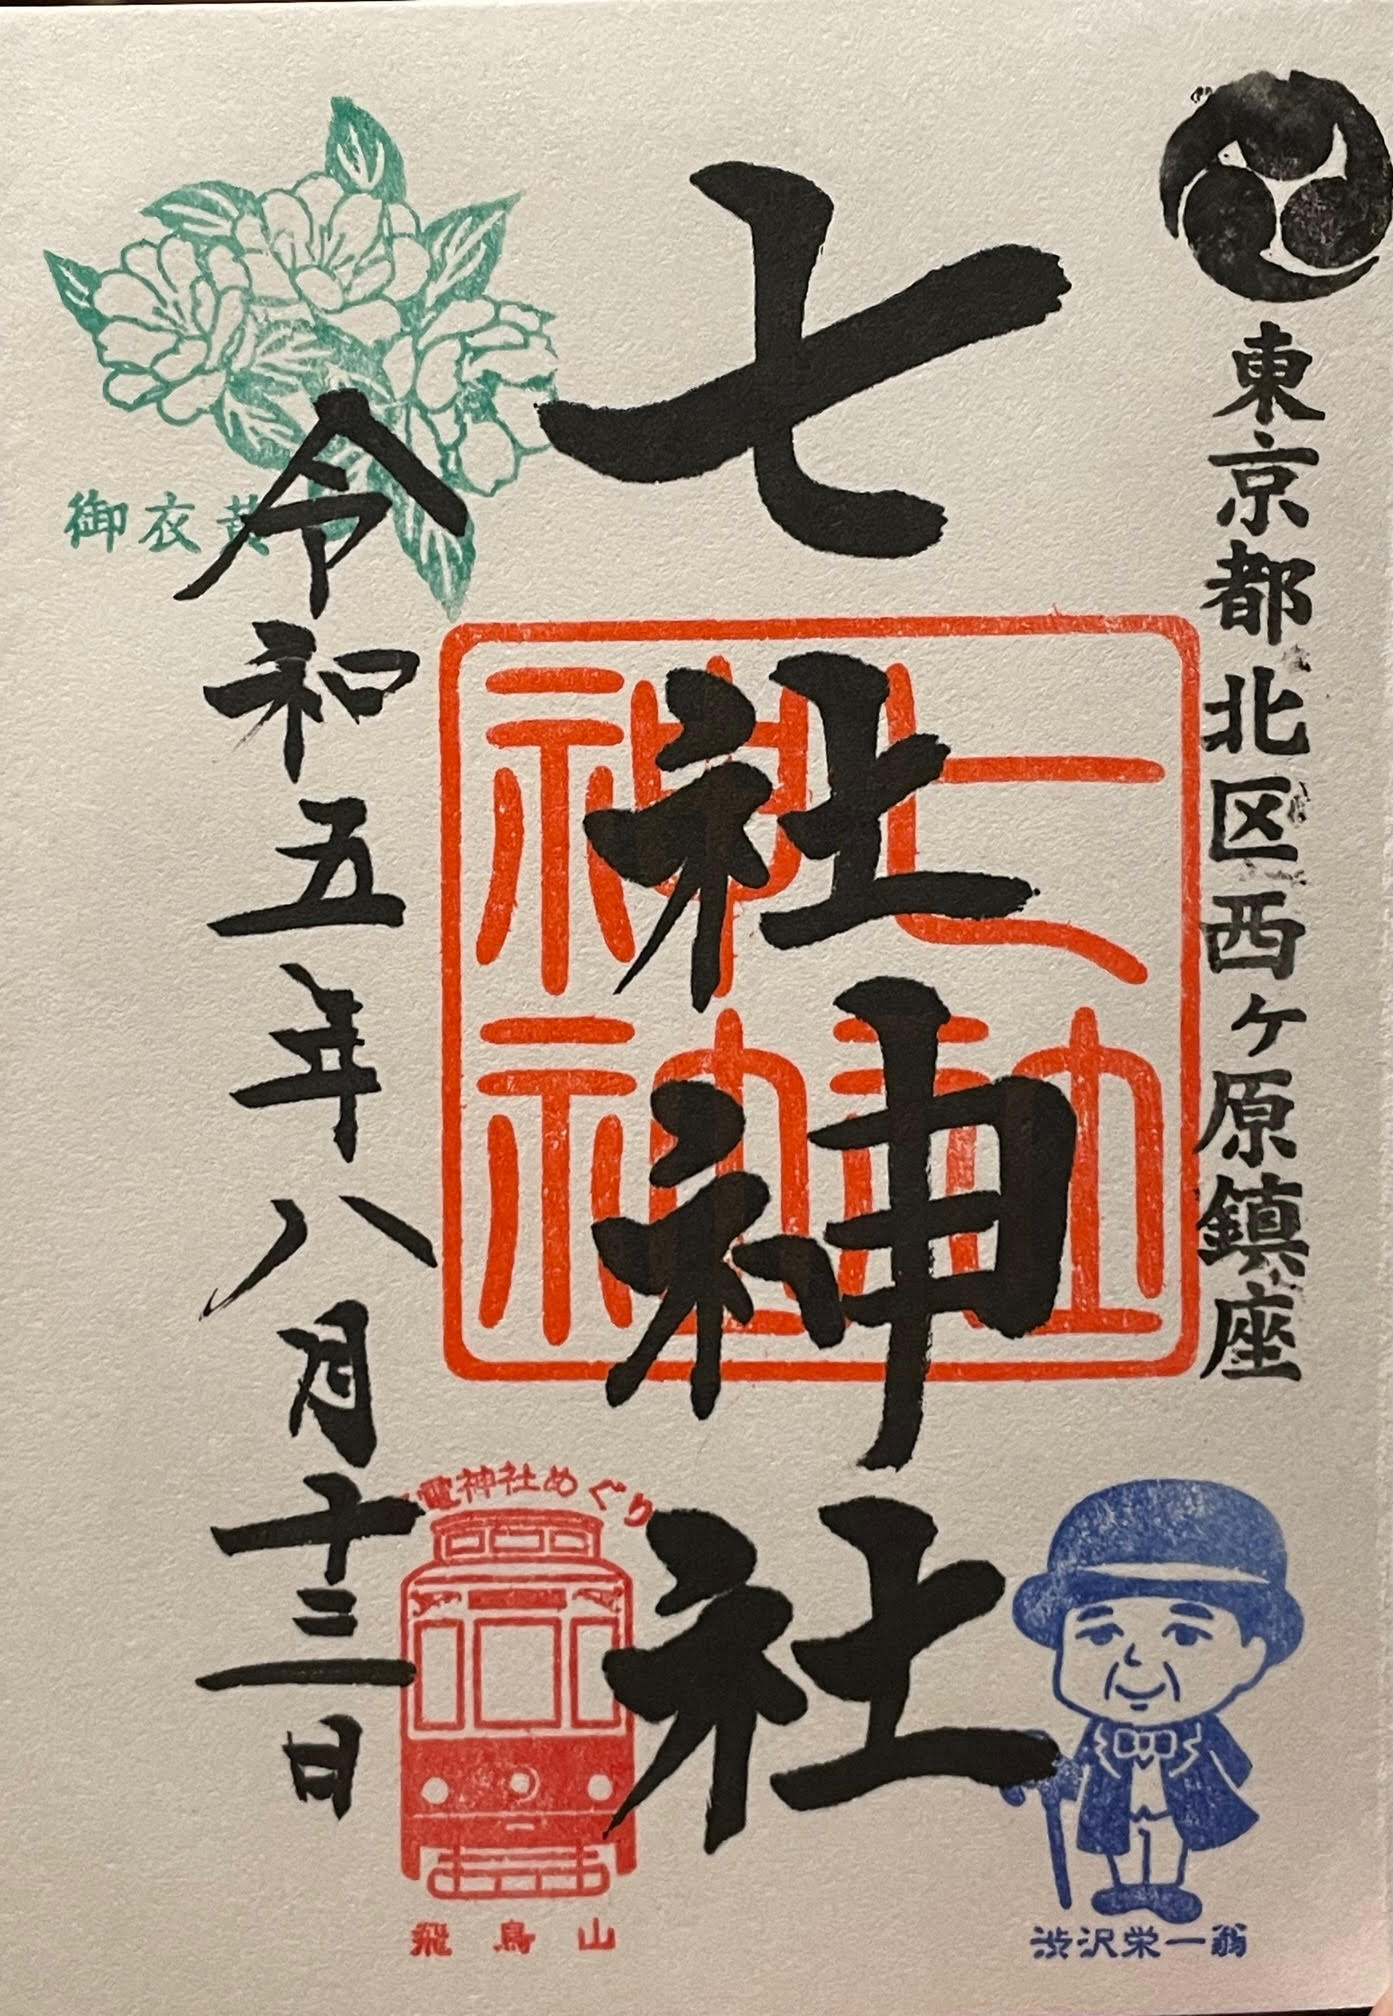 東京都北区西ヶ原鎮座
七社神社
七社
神社
御衣黄
令和五年八月十三日
電神社めぐり
飛鳥山
渋沢栄一翁